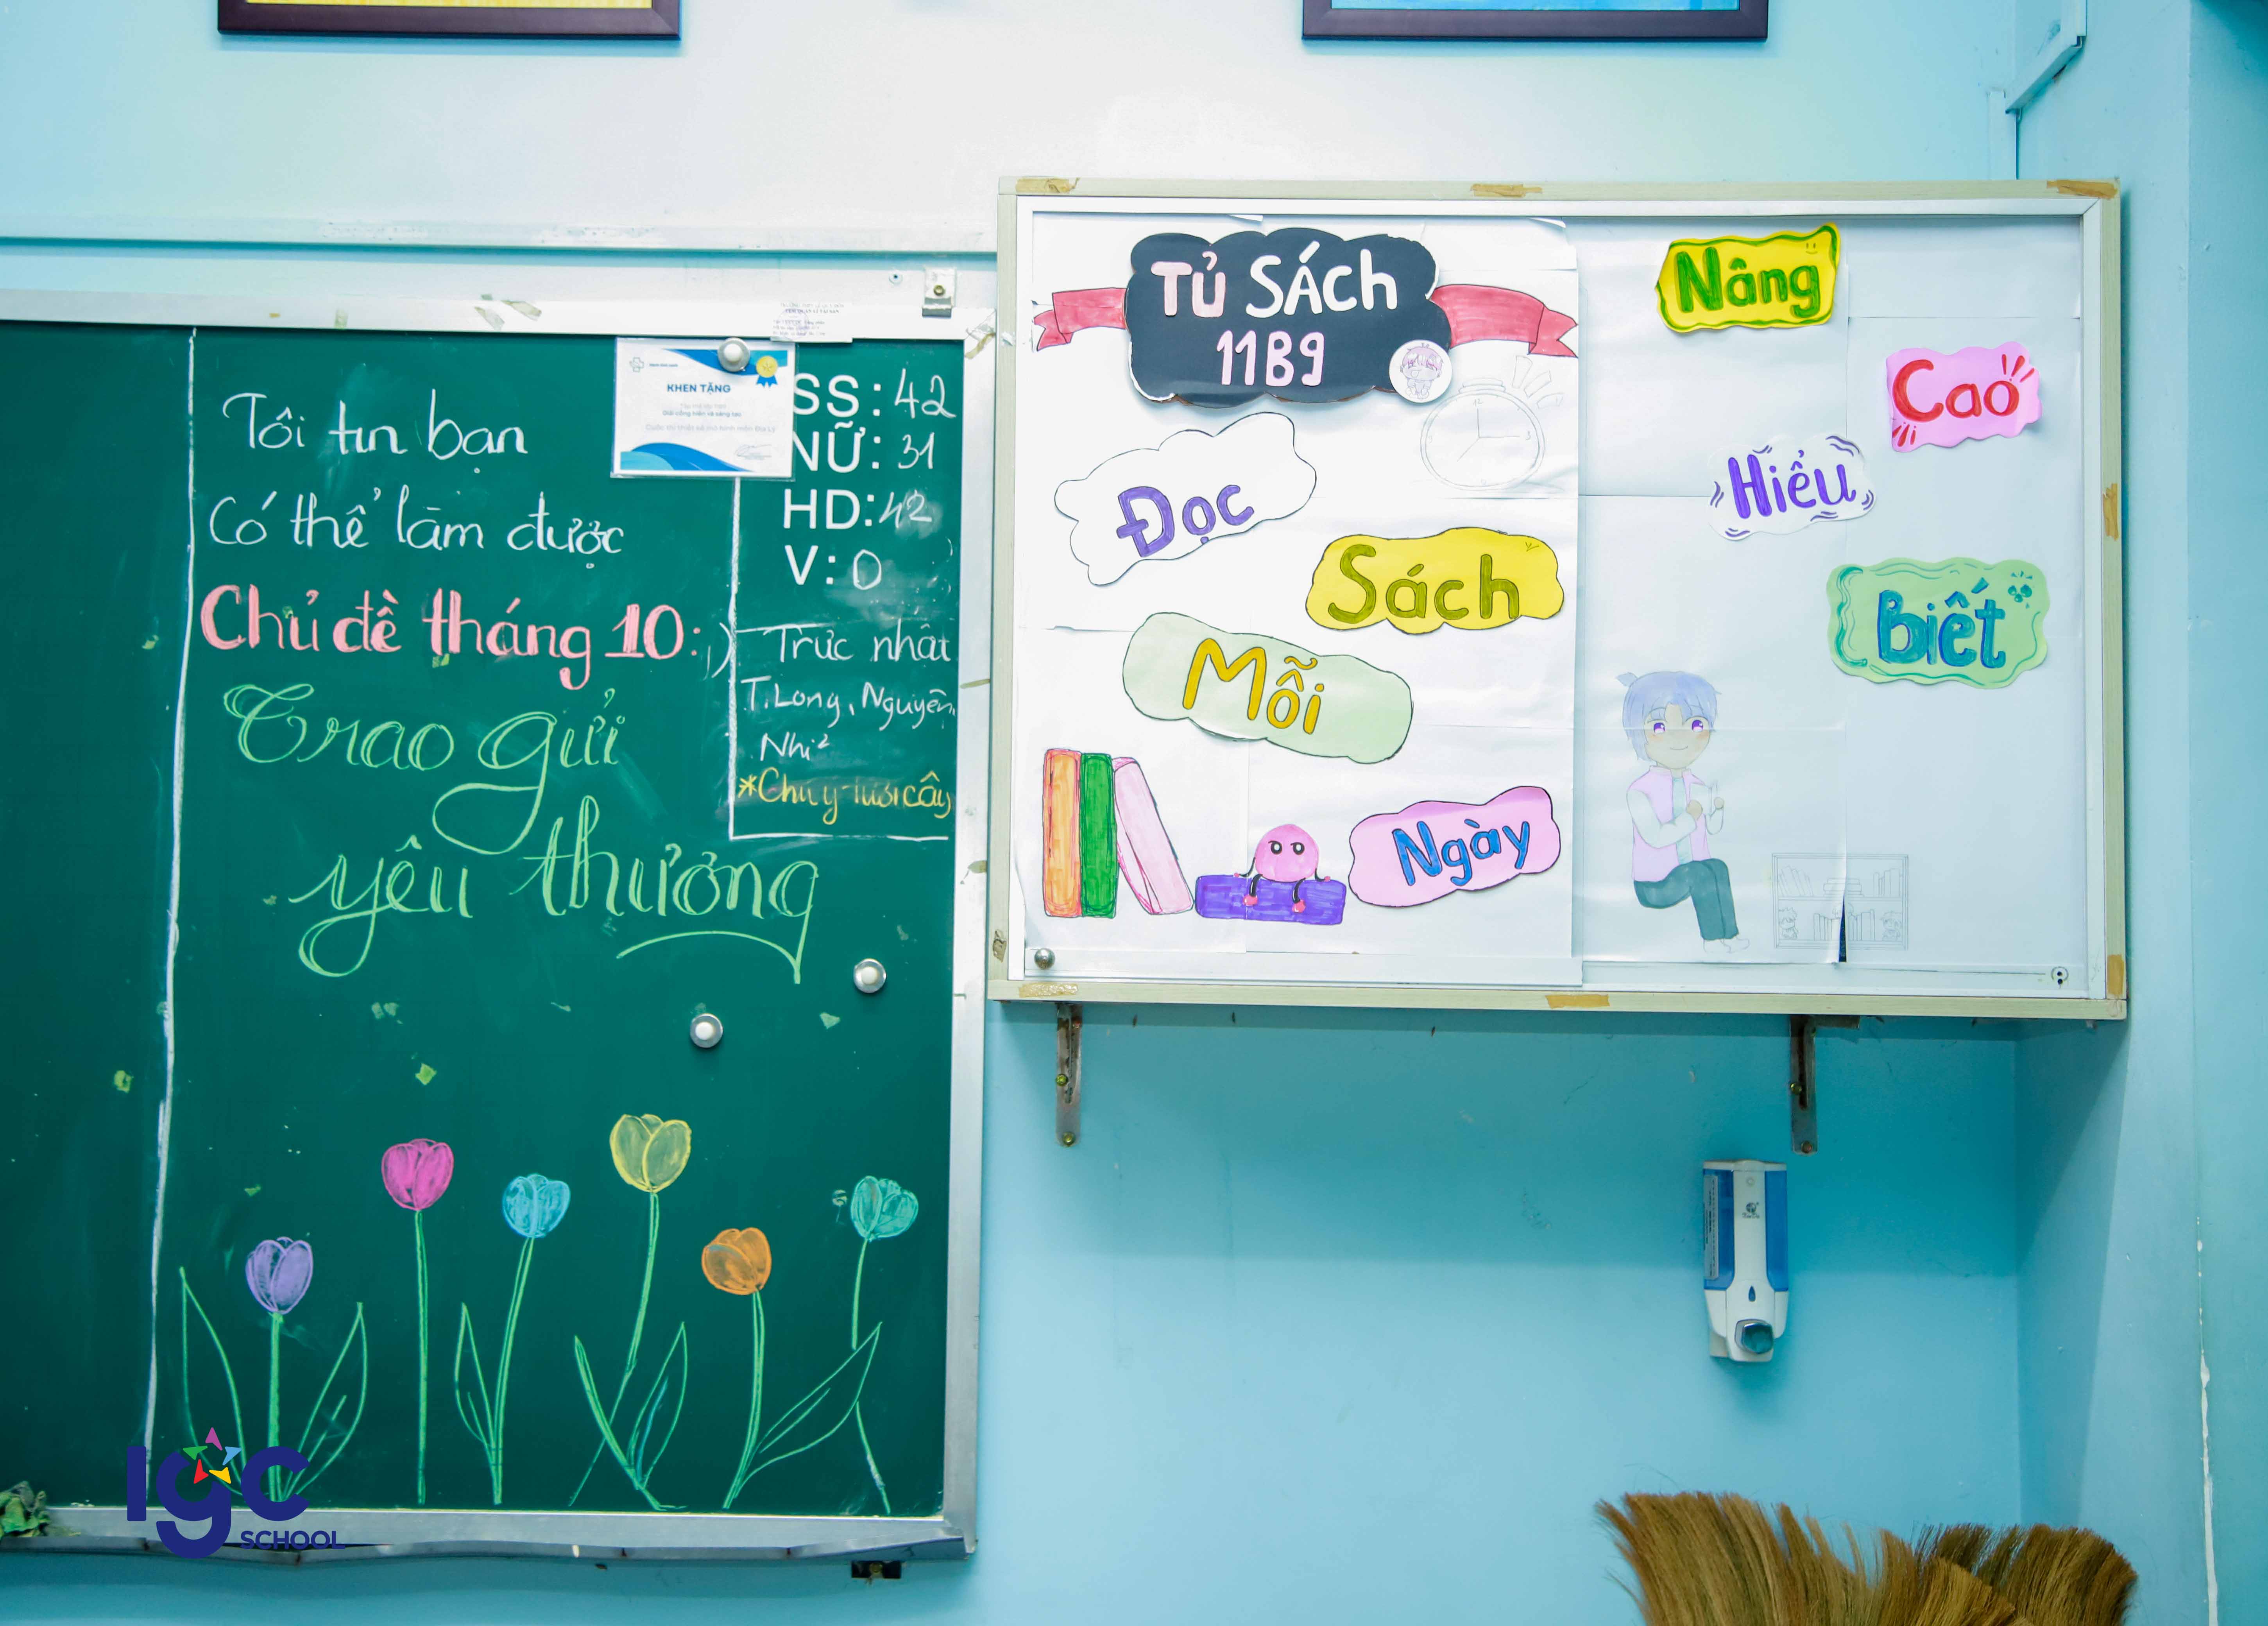 Tôi tin bạn
Có thể làm được
Chủ đề tháng 10:
Trao gửi
yêu thương
KHEN TẶNG
SS: 42
NỮ: 31
HD: 42
V: 0
Trực nhật
T.Long, Nguyên,
Nhi²
*Chú ý tưới cây
TỦ SÁCh
11B9
Đọc
Sách
Mỗi
Ngày
Nâng
Cao
Hiểu
biết
IGC
SCHOOL